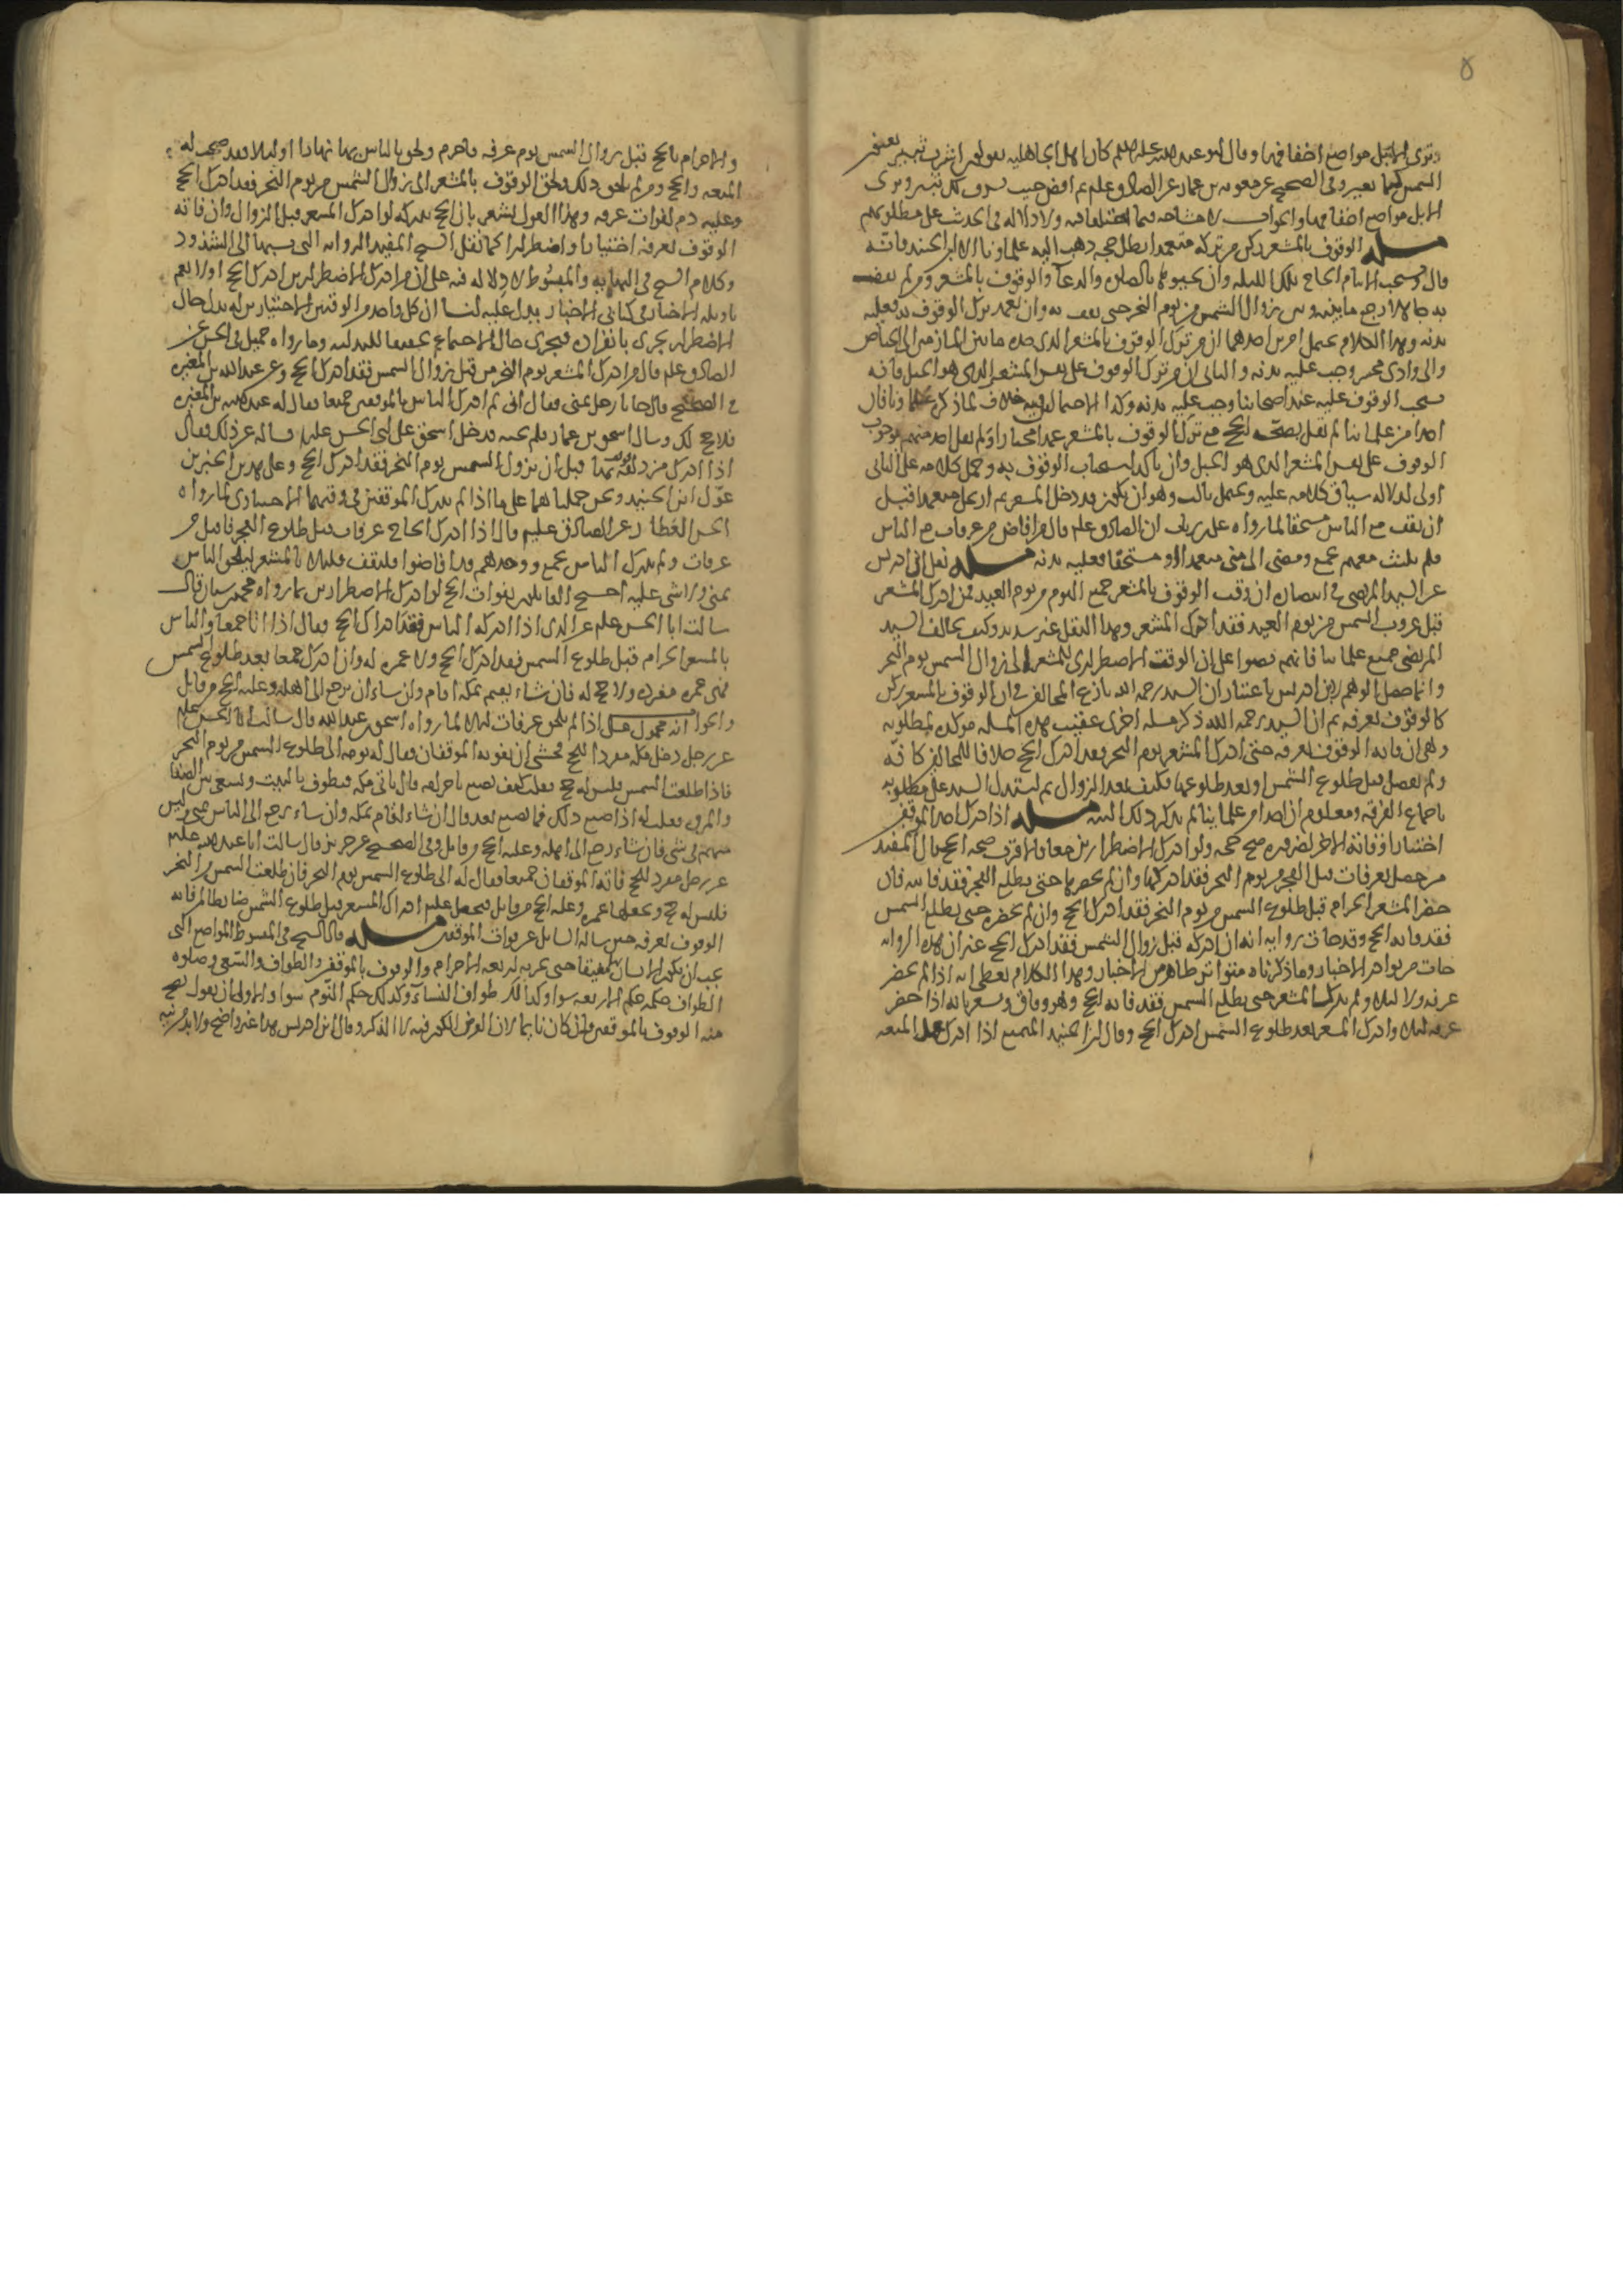 وترى الإبل مواضع اخفافها وقال ابو عبد الله عليه السلم كان اهل الجاهلية يقولون اشرق ثبير يعنون
الشمس كيما نغير وفي الصحيح عن معوية بن عمار عن الصادق علم ثم افض حيث يشرق لك ثبير وترى
الابل مواضع اخفافها والجواب لا مشاحه فيما اختلفا فيه ولا دلالة في الحديث على مطلوبكم
مسله الوقوف بالمشعر ركن من تركه متعمدا بطل حجه ذهب اليه علماونا الا ابن الجنيد فانه
قال ويستحب للامام الحاج تلك الليله وان يحيوها بالصلوه والدعآ والوقوف بالمشعر ومن لم يقف
به جاهلا رجع ما بينه وبين زوال الشمس من يوم النحر حتى يقف به وان تعمد ترك الوقوف به فعليه
بدنه وهذا الكلام يحتمل امرين احدهما ان من ترك الوقوف بالمشعر الذي حده ما بين المازمين الى الحياض
والى وادي محسر وجب عليه بدنه والثاني ان من ترك الوقوف على نفس المشعر الذي هو الجبل فانه
يستحب الوقوف عليه عند اصحابنا وجب عليه بدنه وكلا الاحتمالين فيه خلاف لما ذكره علماونا فان
احدا من علمائنا لم يقل بصحه الحج مع ترك الوقوف بالمشعر عمدا مختارا ولم يقل احد منهم بوجوب
الوقوف على نفس المشعر الذي هو الجبل وان تاكد استحباب الوقوف به وحمل كلامه على الثاني
اولى لدلالة سياق كلامه عليه ويحتمل ثالث وهو ان يكون قد دخل المشعر ثم ارتحل متعمدا قبل
ان يقف مع الناس مستخفا لما رواه علي بن رياب ان الصادق علم قال من افاض من عرفات مع الناس
فلم يلبث معهم بجمع ومضى الى منى متعمدا او مستخفا فعليه بدنه مسله نقل ابن ادريس
عن السيد المرتضى في انتصاره ان وقت الوقوف بالمشعر جميع اليوم من يوم العيد فمن ادرك المشعر
قبل غروب الشمس من يوم العيد فقد ادرك المشعر وهذا النقل غير سديد وكيف يخالف السيد
المرتضى جميع علمائنا فانهم نصوا على ان الوقت الاضطراري للمشعر الى زوال الشمس يوم النحر
وانما حصل الوهم لابن ادريس باعتبار ان السيد رحمه الله نازع المخالف في ان الوقوف بالمشعر ركن
كالوقوف بعرفه ثم ان السيد رحمه الله ذكر مسله اخرى عقيب هذه المسله موكده لمطلوبه
وهي ان فاته الوقوف بعرفه حتى ادرك المشعر يوم النحر فقد ادرك الحج خلافا للمخالفين كافه
ولم يفصل قبل طلوع الشمس او بعد طلوعها فكيف بعد الزوال ثم استدل السيد على مطلوبه
باجماع الفرقه ومعلوم ان احدا من علمائنا لم يذكر ذلك البته مسله اذا ادرك احد الموقفين
اختيارا وفاته الاخر لضروره صح حجه ولو ادرك الاضطرارين معا فالاقرب صحه الحج قال المفيد
من حصل بعرفات قبل الفجر من يوم النحر فقد ادركها وان لم يحضرها حتى يطلع الفجر فقد فاتته فان
حضر المشعر الحرام قبل طلوع الشمس من يوم النحر فقد ادرك الحج وان لم يحضره حتى يطلع الشمس
فقد فاته الحج وقد جات روايه انه ان ادركه قبل زوال الشمس فقد ادرك الحج غير ان هذه الروايه
جات من نوادر الاخبار وما ذكرناه متواتر ظاهر من الاخبار وهذا الكلام يعطي انه اذا لم يحضر
عرفه ولا ليلا ولم يدرك المشعر حتى يطلع الشمس فقد فاته الحج وهو وفاق ويشعر بانه اذا حضر
عرفه ليلا وادرك المشعر بعد طلوع الشمس ادرك الحج وقال ابن الجنيد المتمتع اذا ادرك عمل المتعه
والاحرام بالحج قبل زوال الشمس يوم عرفه فاحرم ولحق بالناس بها نهارا او ليلا فقد صحت له
المتعه والحج ومن لم يلحق ذلك ولحق الوقوف بالمشعر الى زوال الشمس من يوم النحر فقد ادرك الحج
وعليه دم لفوات عرفه وهذا القول يشعر بان الحج يدركه لو ادرك المشعر قبل الزوال وان فاته
الوقوف بعرفه اختيارا واضطرارا كما نقل الشيخ المفيد الروايه التي نسبها الى الشذوذ
وكلام الشيخ في النهايه والمبسوط لا دلاله فيه على ان من ادرك الاضطرارين ادرك الحج او لا نعم
تاويله الاخبار في كتابي الاخبار يدل عليه لنا ان كل واحد من الوقتين الاختياريين له بدل حال
الاضطرار يجري بانفراده فيجزي حال الاجتماع تحقيقا للبدليه وما رواه جميل في الحسن عن
الصادق علم قال من ادرك المشعر يوم النحر من قبل زوال الشمس فقد ادرك الحج وعن عبد الله بن المغيره
في الصحيح قال جانا رجل بمنى فقال اني لم ادرك الناس بالموقفين جميعا فقال له عبد الله بن المغيره
فلا حج لك وسال اسحق بن عمار فلم يجبه فدخل اسحق على ابي الحسن علم فساله عن ذلك فقال
اذا ادرك مزدلفه فوقف بها قبل ان تزول الشمس يوم النحر فقد ادرك الحج وعلى هذين الخبرين
عوّل ابن الجنيد ونحن حملناهما على ما اذا لم يدرك الموقفين في وقتهما الاختياري لما رواه
الحسن العطار عن الصادق علم قال اذا ادرك الحاج عرفات قبل طلوع الفجر فاقبل من
عرفات ولم يدرك الناس بجمع ووجدهم قد افاضوا فليقف قليلا بالمشعر وليلحق الناس
بمنى ولا شي عليه احتج القائلون بفوات الحج لو ادرك الاضطرارين بما رواه محمد بن سنان قال
سالت ابا الحسن علم عن الذي اذا ادركه الناس فقد ادرك الحج فقال اذا اتا جمعا والناس
بالمشعر الحرام قبل طلوع الشمس فقد ادرك الحج ولا عمره له وان ادرك جمعا بعد طلوع الشمس
فهي عمره مفرده ولا حج له فان شاء يقيم بمكه اقام وان شاء ان يرجع الى اهله وعليه الحج من قابل
والجواب انه محمول على اذا لم يلحق عرفات ليلا لما رواه اسحق بن عبد الله قال سالت ابا الحسن علم
عن رجل دخل مكه مفردا للحج فخشي ان يفوته الموقفان فقال له يومه الى طلوع الشمس من يوم النحر
فاذا طلعت الشمس فليس له حج فقلت كيف يصنع باحرامه قال ياتي مكه فيطوف بالبيت ويسعى بين الصفا
والمروه فقلت له اذا صنع ذلك فما يصنع بعد قال ان شاء اقام بمكه وان شاء رجع الى الناس بمنى وليس
منهم في شي فان شاء رجع الى اهله وعليه الحج من قابل وفي الصحيح عن حريز قال سالت ابا عبد الله علم
عن رجل مفرد للحج فاته الموقفان جميعا فقال له الى طلوع الشمس يوم النحر فان طلعت الشمس من النحر
فليس له حج ويجعلها عمره وعليه الحج من قابل فجعل علم ادراك المشعر قبل طلوع الشمس ضابطا لمن فاته
الوقوف بعرفه حين ساله السايل عن فوات الموقفين مسله قال الشيخ في المبسوط المواضع التي
يجب ان يكون الانسان مفيقا حتى يجزيه اربعه الاحرام والوقوف بالموقفين والطواف والسعي وصلوه
الطواف حكمه حكم الاربعه سوا وكذلك طواف النسآء وكذلك حكم النوم سوا والاولى ان نقول يصح
منه الوقوف بالموقفين وان كان نايما لان الغرض الكون فيه لا الذكر وقال ابن ادريس هذا غير واضح ولا بد من نيه